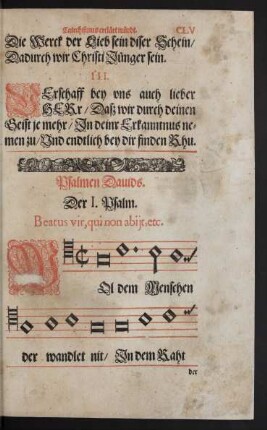 CLV
Die Werck der Lieb sein diser Schein/
Dadurch wir Christi Jünger sein.
III.
VErschaff bey vns auch lieber
HERr/ Daß wir durch deinen
Geist je mehr/ In deinr Erkanntnus ne-
men zu/ Vnd endtlich bey dir finden Rhu.
Psalmen Dauids.
Der I. Psalm.
Beatus vir, qui non abijt. etc.
WOl dem Menschen
der wandlet nit/ In dem Raht
der